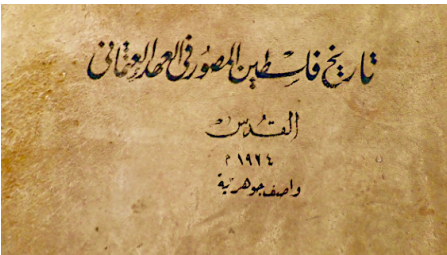 تاريخ فلسطين المصور في العهد العثماني
القدس
١٩٢٤ م
واصف جوهرية